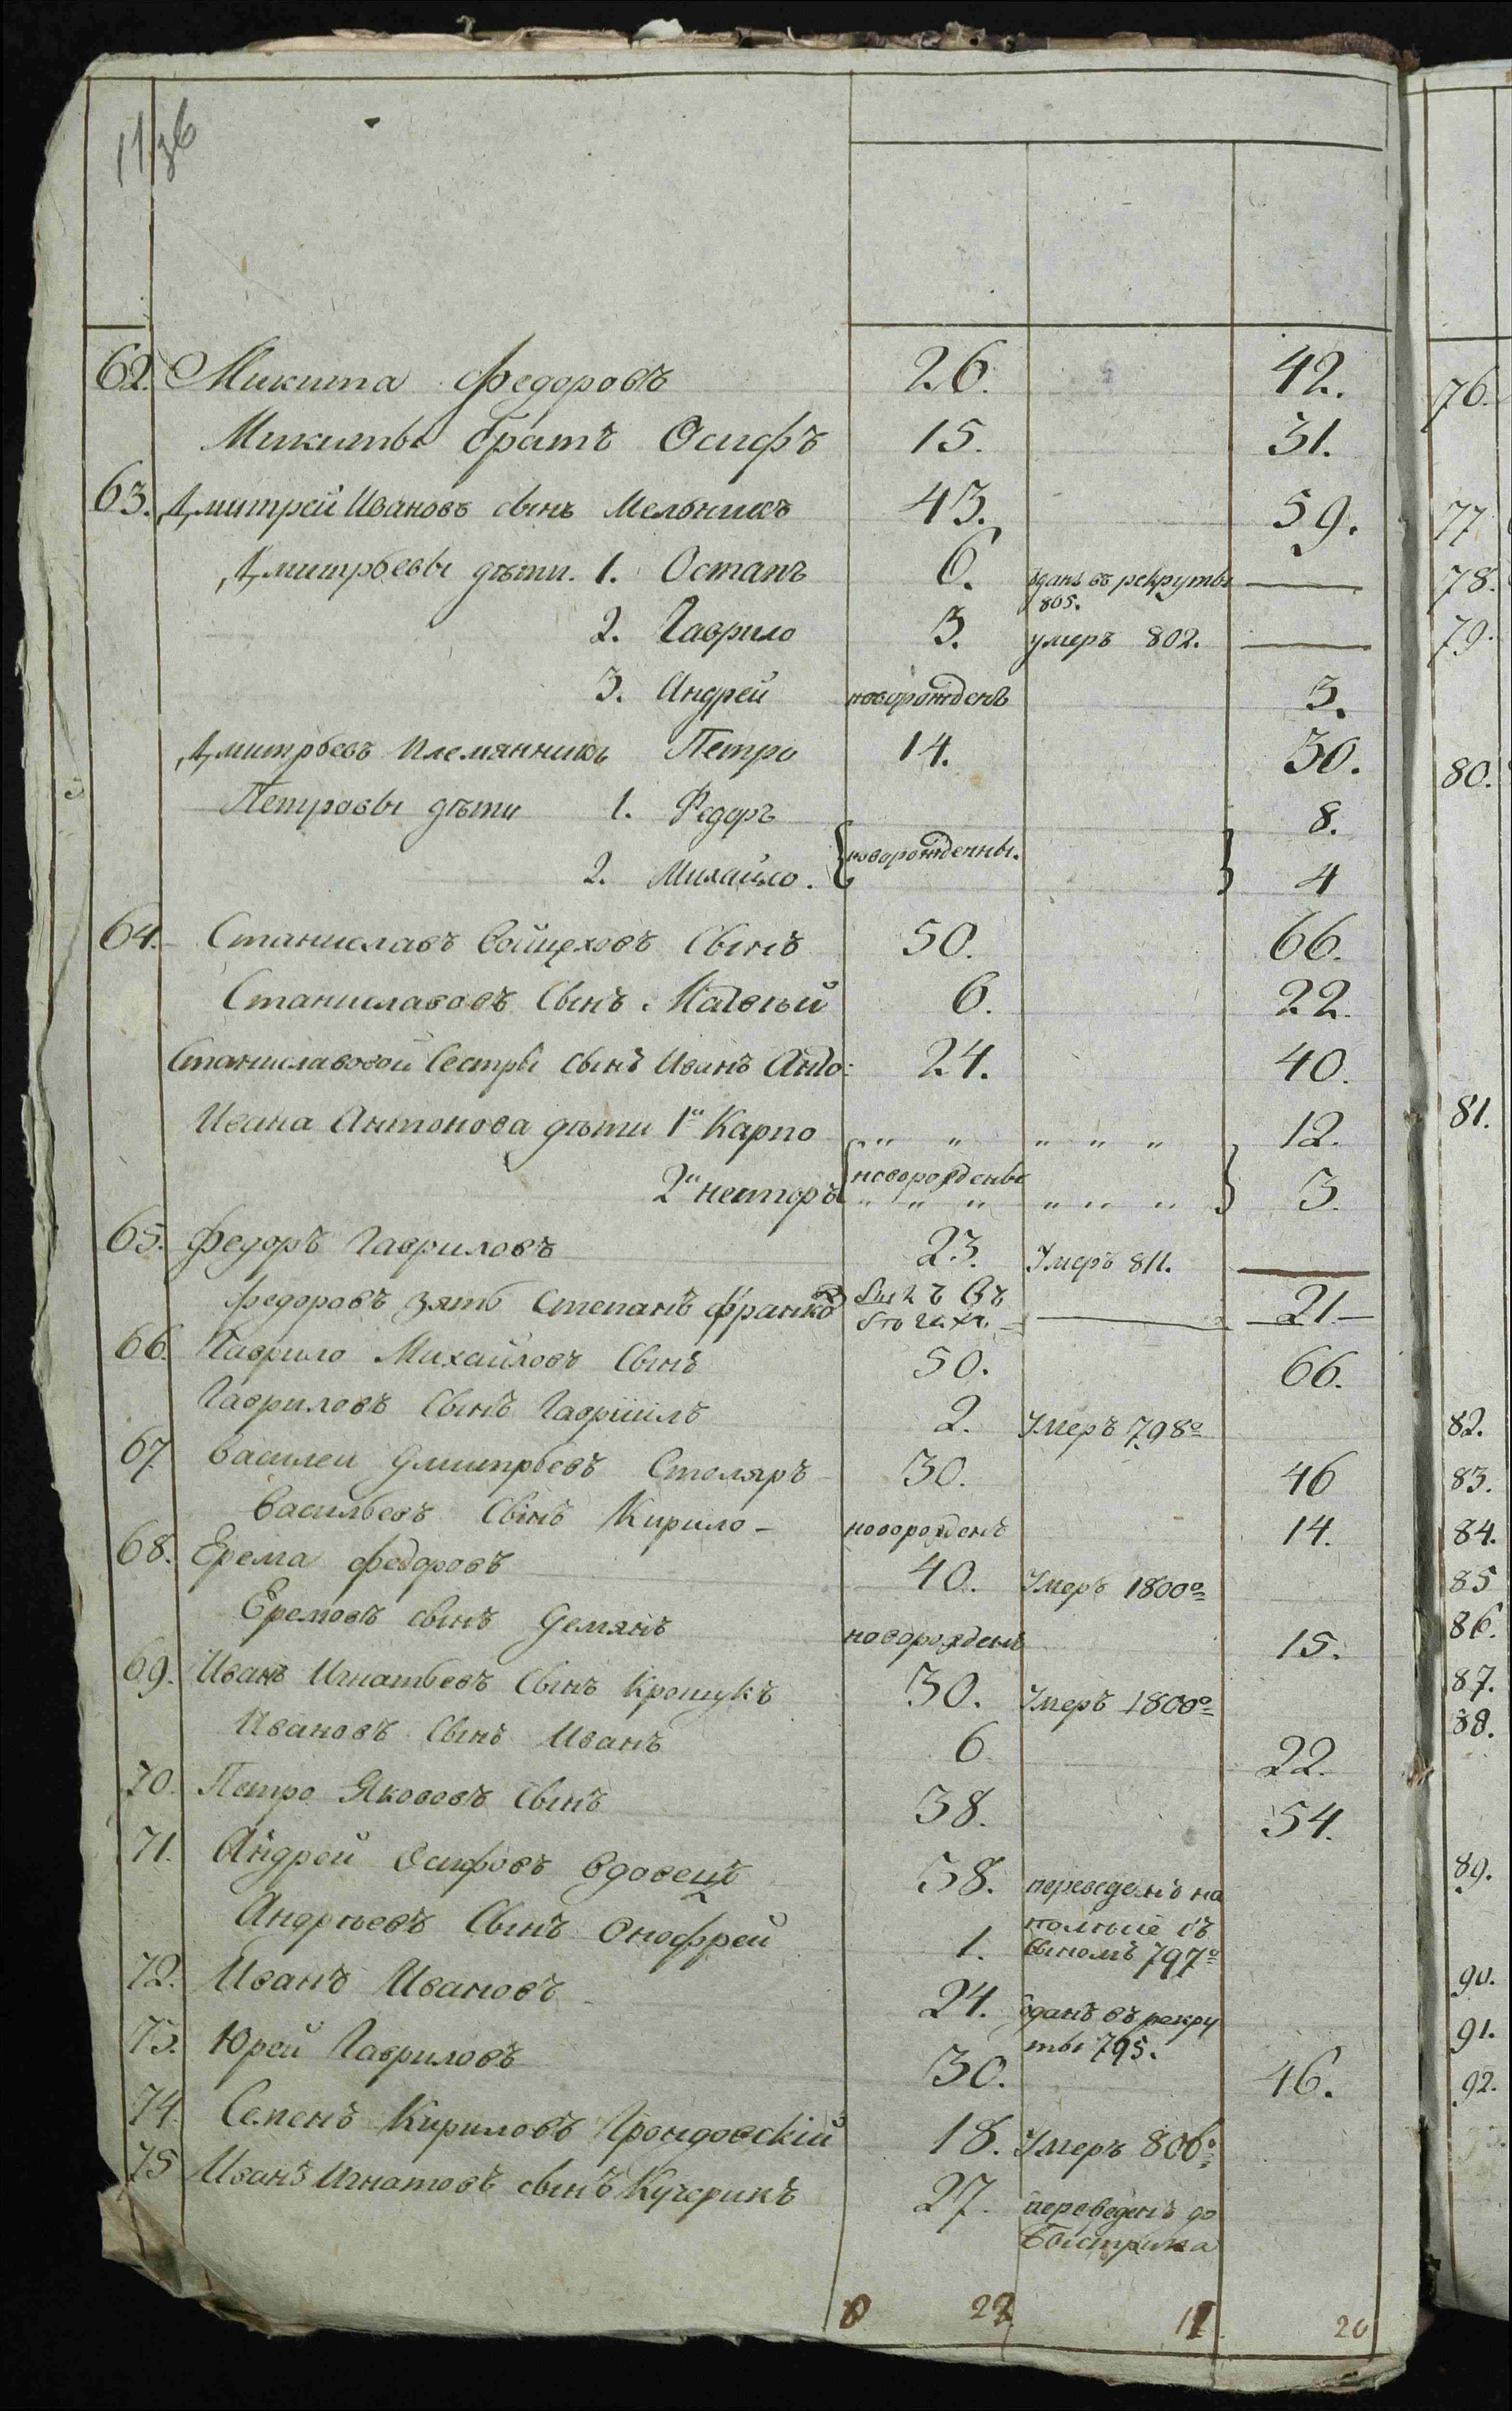 11 36
62. Микита Федоровъ 26. 42.
Микиты братъ Осифъ 15. 31.
63. Дмитрей Ивановъ сынъ Мельникъ 43. 59.
Дмитрьевы дѣти. 1. Остапъ 6. зданъ въ рекруты 805. —
2. Гаврило 3. умеръ 802. —
3. Андрей новорожденъ 3.
Дмитрьевъ племянникъ Петро 14. 30.
Петровы дѣти 1. Федоръ 8.
2. Михайло. новорожденны. 4
64. Станиславъ Войцеховъ Сынъ 50. 66.
Станиславовъ Сынъ Матвѣй 6. 22.
Станиславовой Сестры сынъ Иванъ Анто: 24. 40.
Ивана Антонова дѣти 1й Карпо 12.
2й несторъ новорождены 3.
65. Федоръ Гавриловъ 23. Умеръ 811. —
Федоровъ зять Степанъ Франко 21
66. Гаврило Михайловъ Сынъ 50. 66.
Гавриловъ Сынъ Гавріилъ 2. Умеръ 798º
67. Василеи Дмитрьевъ Столяръ 30. 46
Васильевъ Сынъ Кирило – новорожденъ 14.
68. Ерема Федоровъ 40. Умеръ 1800º
Еремовъ сынъ Демянъ новорожденъ 15.
69. Иванъ Игнатьевъ Сынъ Крощукъ 30. Умеръ 1800º
Ивановъ Сынъ Иванъ 6 22.
70. Петро Якововъ Сынъ 38. 54.
71. Андрей Осифовъ вдовецъ 38. переведенъ на
Андрѣевъ Сынъ Онофрей 1. съ сыномъ 797º
72. Иванъ Ивановъ 24. зданъ въ рекруты 795.
73. Юрей Гавриловъ 30. 46.
74. Семенъ Кириловъ 18. Умеръ 806º
75 Иванъ Игнатовъ сынъ Кучерикъ 27. переведенъ до Быстрика
22 11 20
76.
77
78.
79.
80.
81.
82.
83.
84.
85
86.
87.
88.
89.
90.
91.
92.